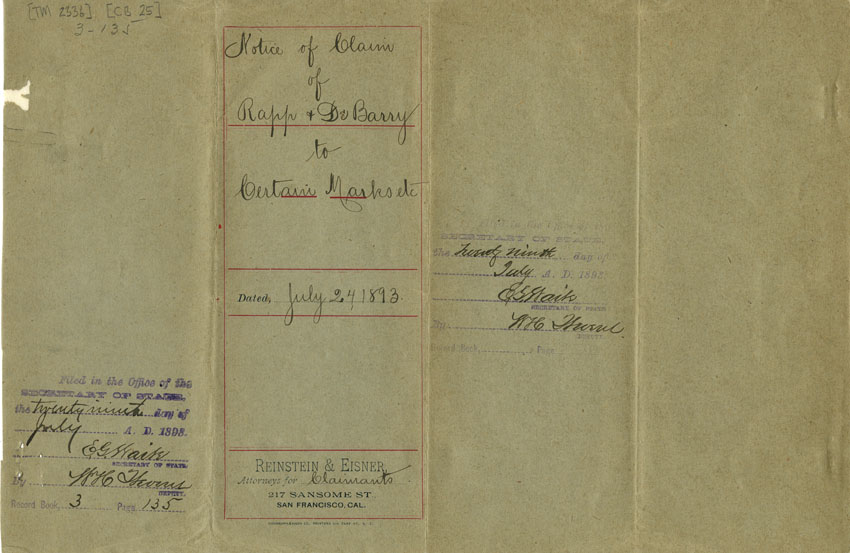 [TM 2336] [CB 25]
3-135
Notice of Claim
of
Rapp & De Barry
to
Certain Marks etc
Dated, July 24 1893.
REINSTEIN & EISNER
Attorneys for Claimants
217 SANSOME ST.
SAN FRANCISCO, CAL.
Filed in the Office of the
SECRETARY OF STATE,
the twenty ninth day of
July A. D. 1893.
E G Waite
SECRETARY OF STATE
By W H
DEPUTY.
Record Book, 3 Page 135
SECRETARY OF STATE,
the twenty ninth day of
July A. D. 1893
E G Waite
SECRETARY OF STATE
By W H
DEPUTY.
Record Book, Page